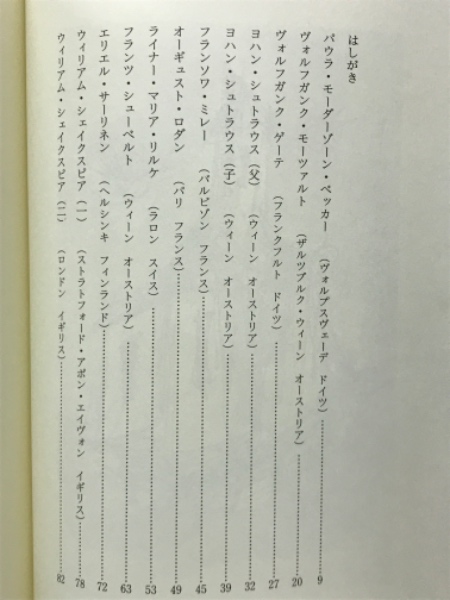 はしがき
パウラ・モーダーゾーン・ベッカー (ヴォルプスヴェーデ ドイツ) 9
ヴォルフガンク・モーツァルト (ザルツブルク・ウィーン オーストリア) 20
ヴォルフガンク・ゲーテ (フランクフルト ドイツ) 27
ヨハン・シュトラウス(父) (ウィーン オーストリア) 32
ヨハン・シュトラウス(子) (ウィーン オーストリア) 39
フランソワ・ミレー (バルビゾン フランス) 45
オーギュスト・ロダン (パリ フランス) 49
ライナー・マリア・リルケ (ラロン スイス) 53
フランツ・シューベルト (ウィーン オーストリア) 63
エリエル・サーリネン (ヘルシンキ フィンランド) 72
ウィリアム・シェイクスピア(一) (ストラトフォード・アポン・エイヴォン イギリス) 78
ウィリアム・シェイクスピア(二) (ロンドン イギリス) 82